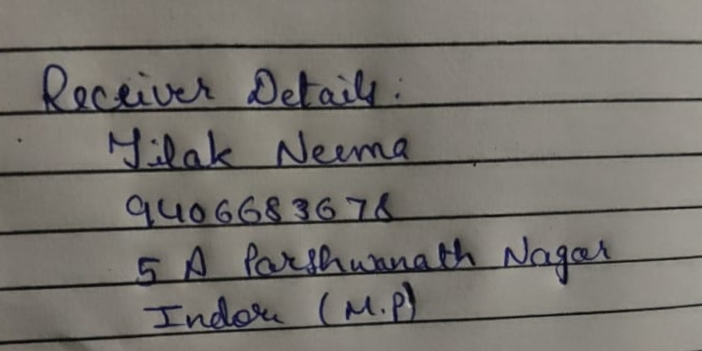 Receiver Details:
Tilak Neema
9406683678
5 A Parshwanath Nagar
Indore (M.P)